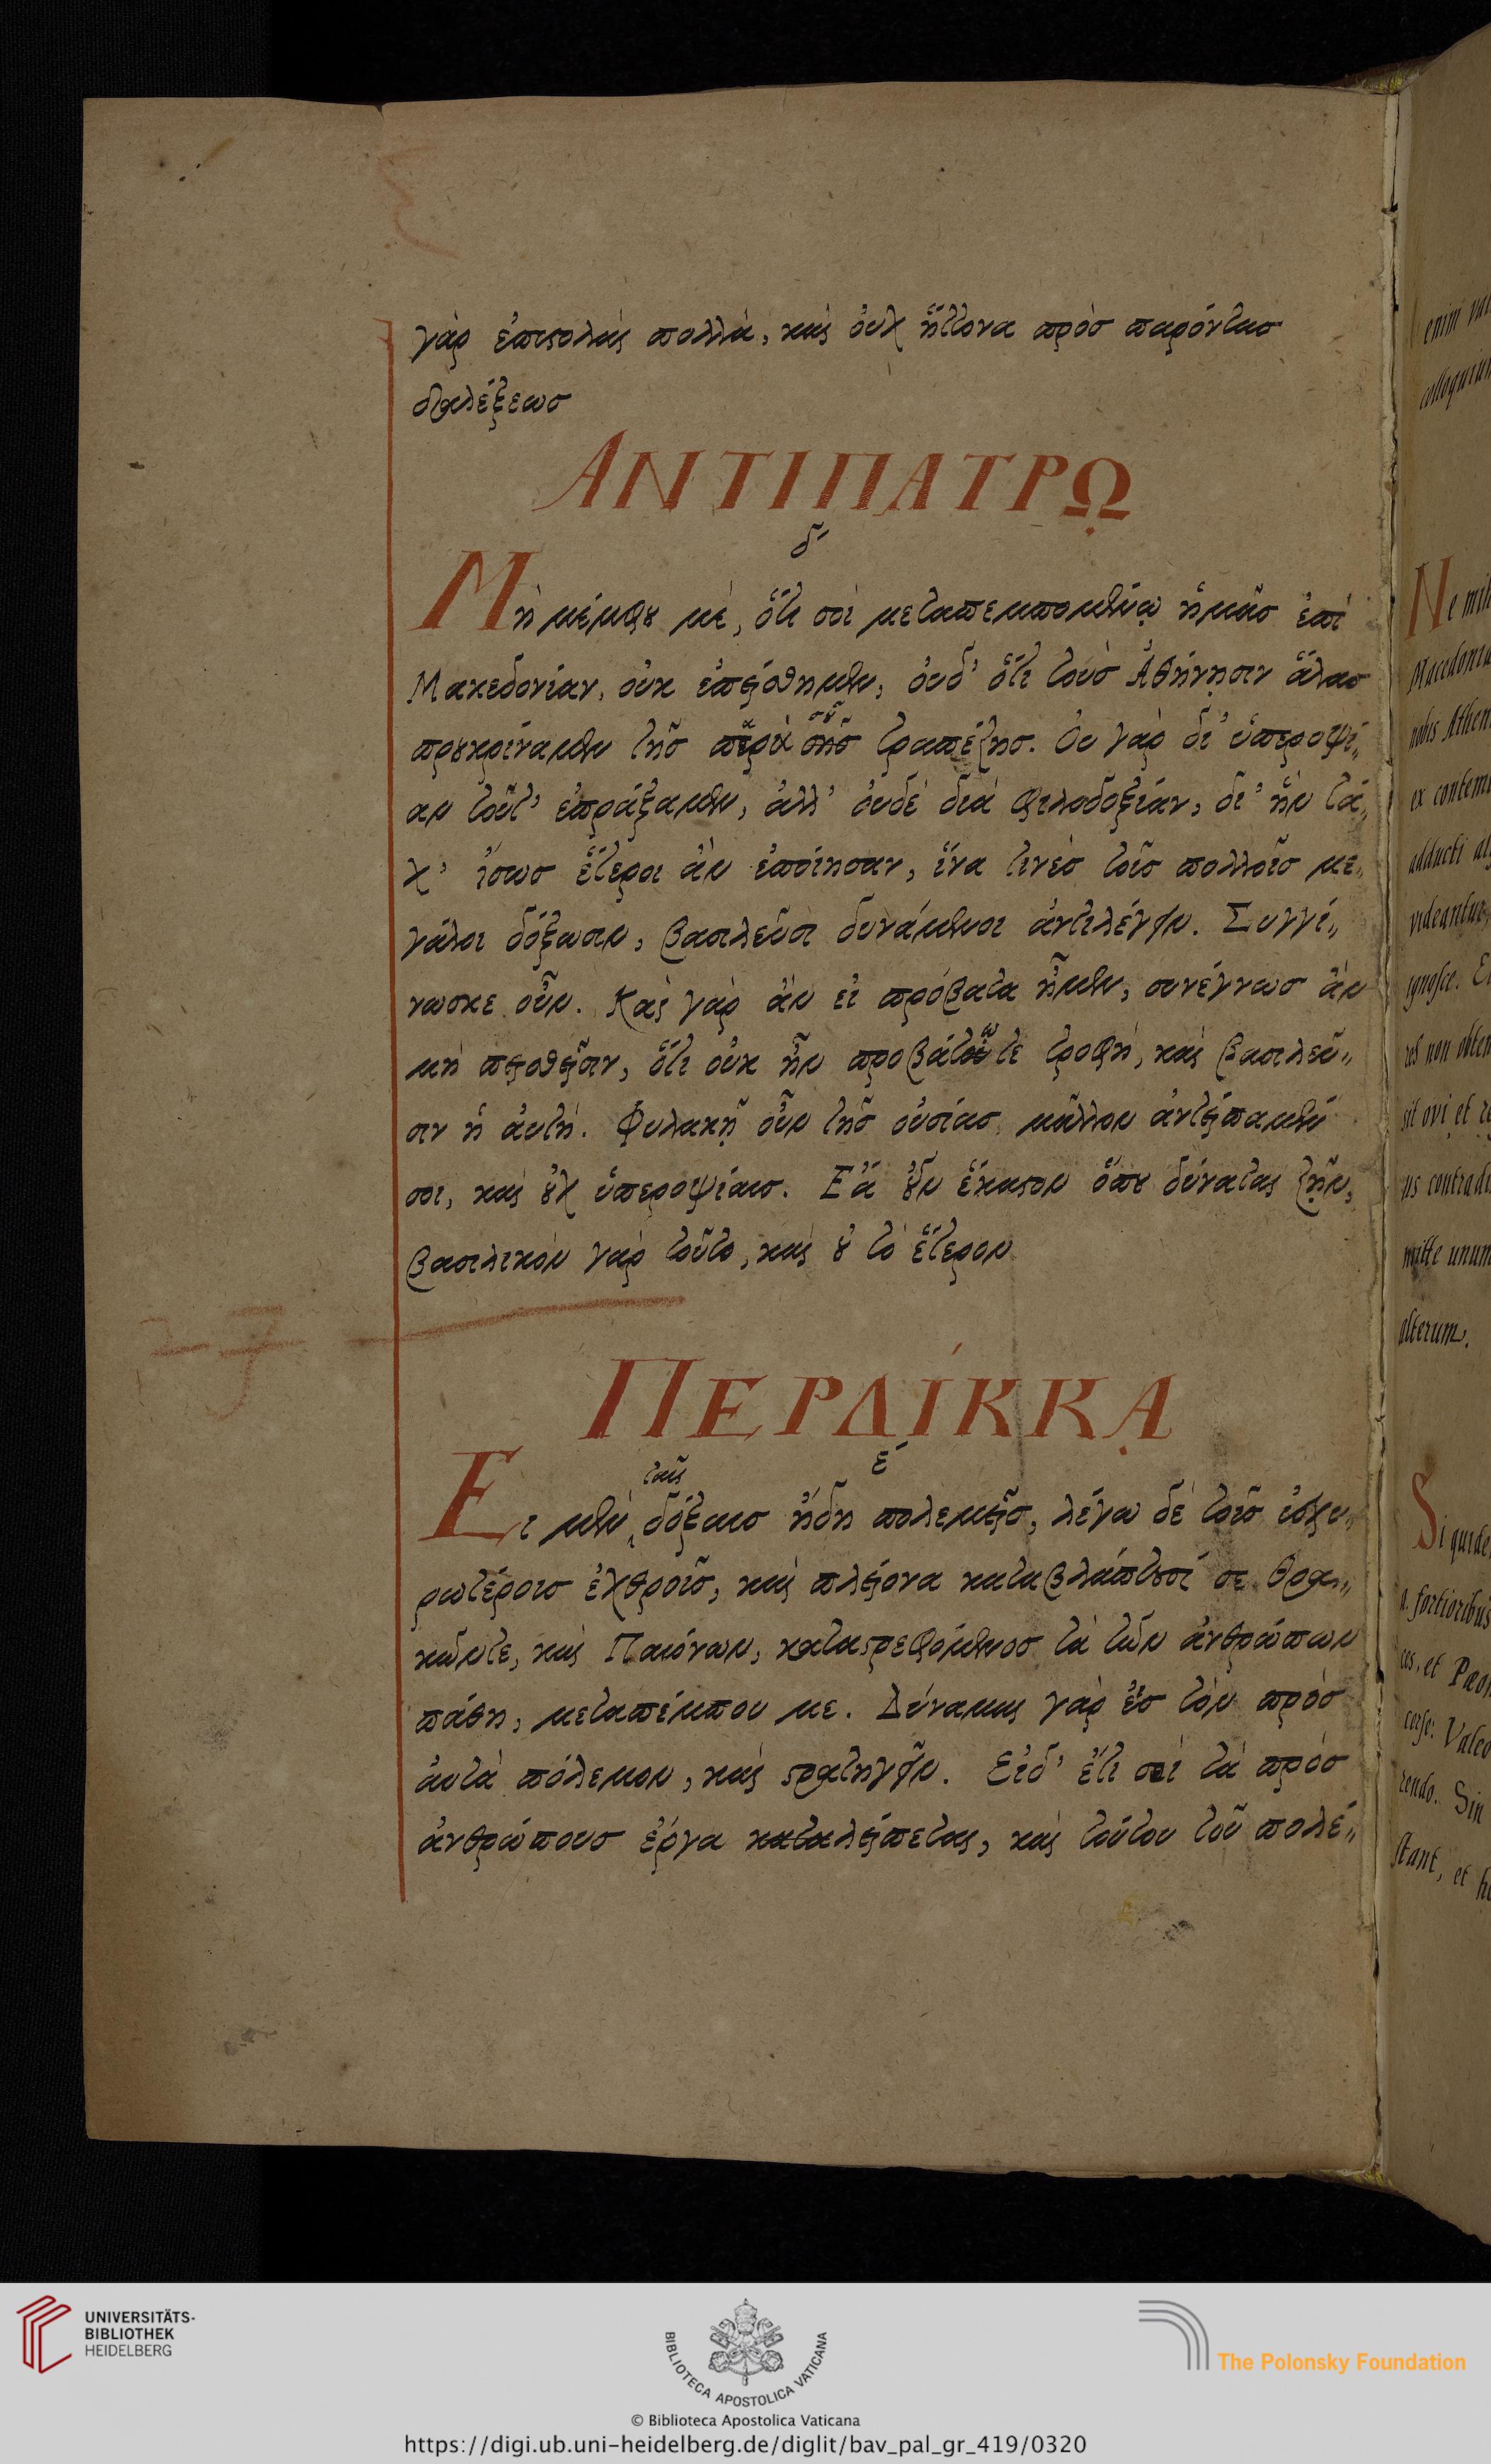 γὰρ ἐπιστολαὶ πολλὰ, καὶ ὀυχ ἥττονα πρὸσ παρόντασ
διαλέξεωσ
ΑΝΤΙΠΑΤΡῼ
δ´
Μὴ μέμφου μὲ, ὅτι σοὶ μεταπεμπομένῳ ἡμᾶσ ἐπὶ
Μακεδονίαν, οὐκ ἐπείσθημεν, ὀυδ' ὅτι τοὺσ Ἀθήνησιν ἅλασ
προυκρίναμεν τῆσ τραπέζησ. Ὀυ γὰρ δι' ὑπεροψί„
αν τοῦτ' ἐπράξαμεν, ἀλλ' ὀυδὲ διὰ φιλοδοξίαν, δι' ἣν τά„
χ' ἴσωσ ἕτεροι ἂν ἐποίησαν, ἵνα τινὲσ τοῖσ πολλοῖσ με„
γάλοι δόξωσιν, βασιλεῦσι δυνάμενοι ἀντιλέγειν. Συγγί„
νωσκε οὖν. Καὶ γὰρ ἂν εἰ πρόβατα ἦμεν, συνέγνωσ ἂν
μὴ πεισθεῖσιν, ὅτι οὐκ ἦν προβάτων τε τροφὴ, καὶ βασιλεῦ„
σιν ἡ ἀυτὴ. Φυλακῇ οὖν τῆσ οὐσίασ μᾶλλον ἀντείπαμέν
σοι, καὶ οὐχ ὑπεροψίαισ. Ἔα οὖν ἕκαστον ὅπου δύναται ζῆν,
βασιλικὸν γὰρ τοῦτο, καὶ οὐ τὸ ἕτερον
ΠΕΡΔΊΚΚᾼ
ε´
ταῖς
Εἰ μὲν δόξαισ ἤδη πολεμεῖσ, λέγω δὲ τοῖσ ἰσχυ„
ρωτέροισ ἐχθροῖσ, καὶ πλείονα καταβλάπτουσί σε Θρα„
κῶντε, καὶ Παιόνων, καταστρεφόμενοσ τὰ τῶν ἀνθρώπων
πάθη, μεταπέμπου με. Δύναμαι γὰρ ἐσ τὸν πρὸσ
ἀυτὰ πόλεμον, καὶ στρατηγεῖν. Εἰδ' ἔτι σοὶ τὰ πρὸσ
ἀνθρώπουσ ἔργα καταλείπεται, καὶ τούτου τοῦ πολέ„
enim
Ne mih
Macedonia
nobis Athen
ex contem
adducti
videantur
ignosce.
res non
sit ovi et
us contradi
mitte unum
alterum.
Si quide
fortioribus
ces, et Pæon
Valeo
rendo. Sin
stant, et
UNIVERSITÄTS-
BIBLIOTHEK
HEIDELBERG
BIBLIOTECA APOSTOLICA VATICANA
The Polonsky Foundation
© Biblioteca Apostolica Vaticana
https://digi.ub.uni-heidelberg.de/diglit/bav_pal_gr_419/0320